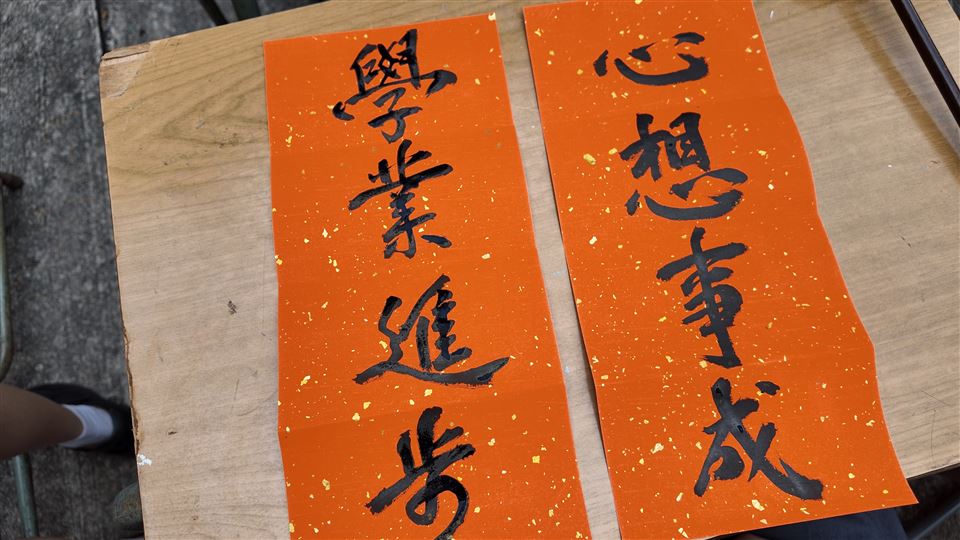 心想事成
學業進步